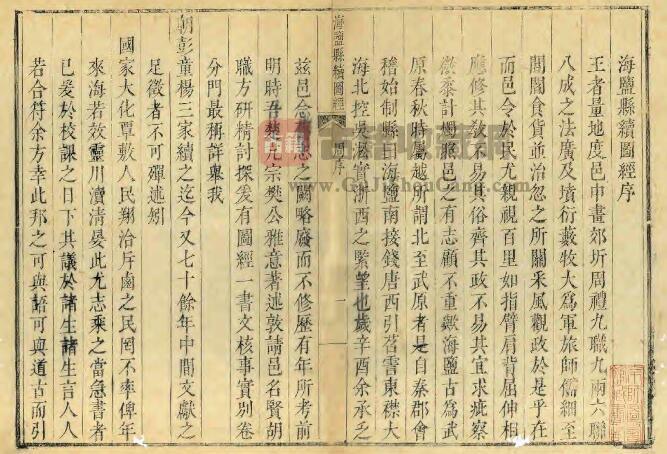 海鹽縣續圖經序
王者量地度邑申畫郊圻周禮九職九兩六聯
八成之法廣及墳衍藪牧大為軍旅師儒細至
閭閻食貨並治忽之所關采風觀政於是乎在
而邑令於民尤親百里如指臂肩背屈伸相
應修其教不易其俗齊其政不易其宜求疵察
計燭照邑之有志顧不重歟海鹽古為武
原春秋時屬越所謂北至武原者是自秦郡會
稽始制縣曰海鹽南接錢唐西引苕霅東襟大
海北控吳淞實浙西之緊望也歲辛酉余承乏
海鹽縣續圖經
序
一
茲邑念之闕略廢而不修歷有年所考前
明時吾楚九宗樊公雅意著述敦請邑名賢胡
職方研精討探爰有圖經一書文核事實別卷
分門最稱詳舉我
朝彭童楊三家續之迄今又七十餘年中間文獻之
足徵者不可殫述矧
國家大化覃敷人民翔洽斥鹵之民罔不率俾年
來海若效靈川瀆清晏此尤志乘之當急書者
已爰於校課之日下其議於諸生諸生言人人
若合符余方幸此邦之可與語可與道古而引